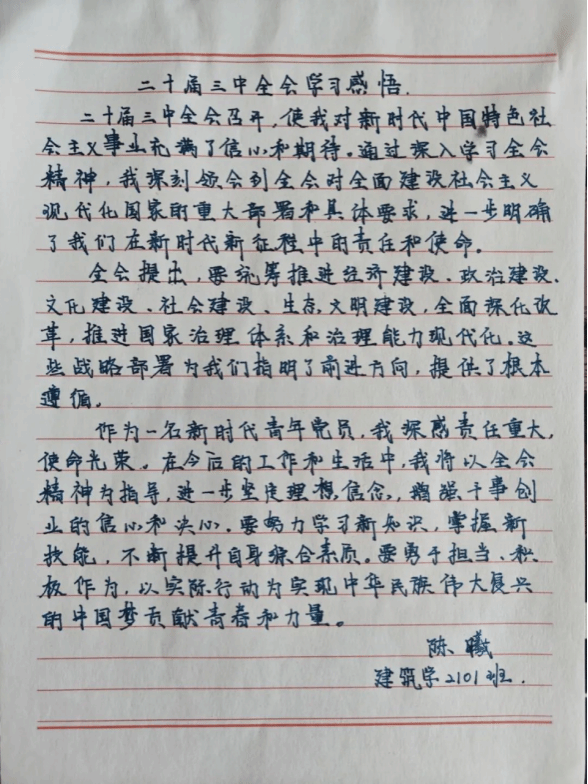 二十届三中全会学习感悟.
二十届三中全会召开,使我对新时代中国特色社
会主义事业充满了信心和期待。通过深入学习全会
精神,我深刻领会到全会对全面建设社会主义
现代化国家的重大部署和具体要求,进一步明确
了我们在新时代新征程中的责任和使命。
全会提出,要统筹推进经济建设、政治建设、
文化建设、社会建设、生态文明建设,全面深化改
革,推进国家治理体系和治理能力现代化。这
些战略部署为我们指明了前进方向,提供了根本
遵循。
作为一名新时代青年党员,我深感责任重大,
使命光荣。在今后的工作和生活中,我将以全会
精神为指导,进一步坚定理想信念,增强干事创
业的信心和决心。要努力学习新知识,掌握新
技能,不断提升自身综合素质。要勇于担当、积
极作为,以实际行动为实现中华民族伟大复兴
的中国梦贡献青春和力量。
陈曦
建筑学2101班.